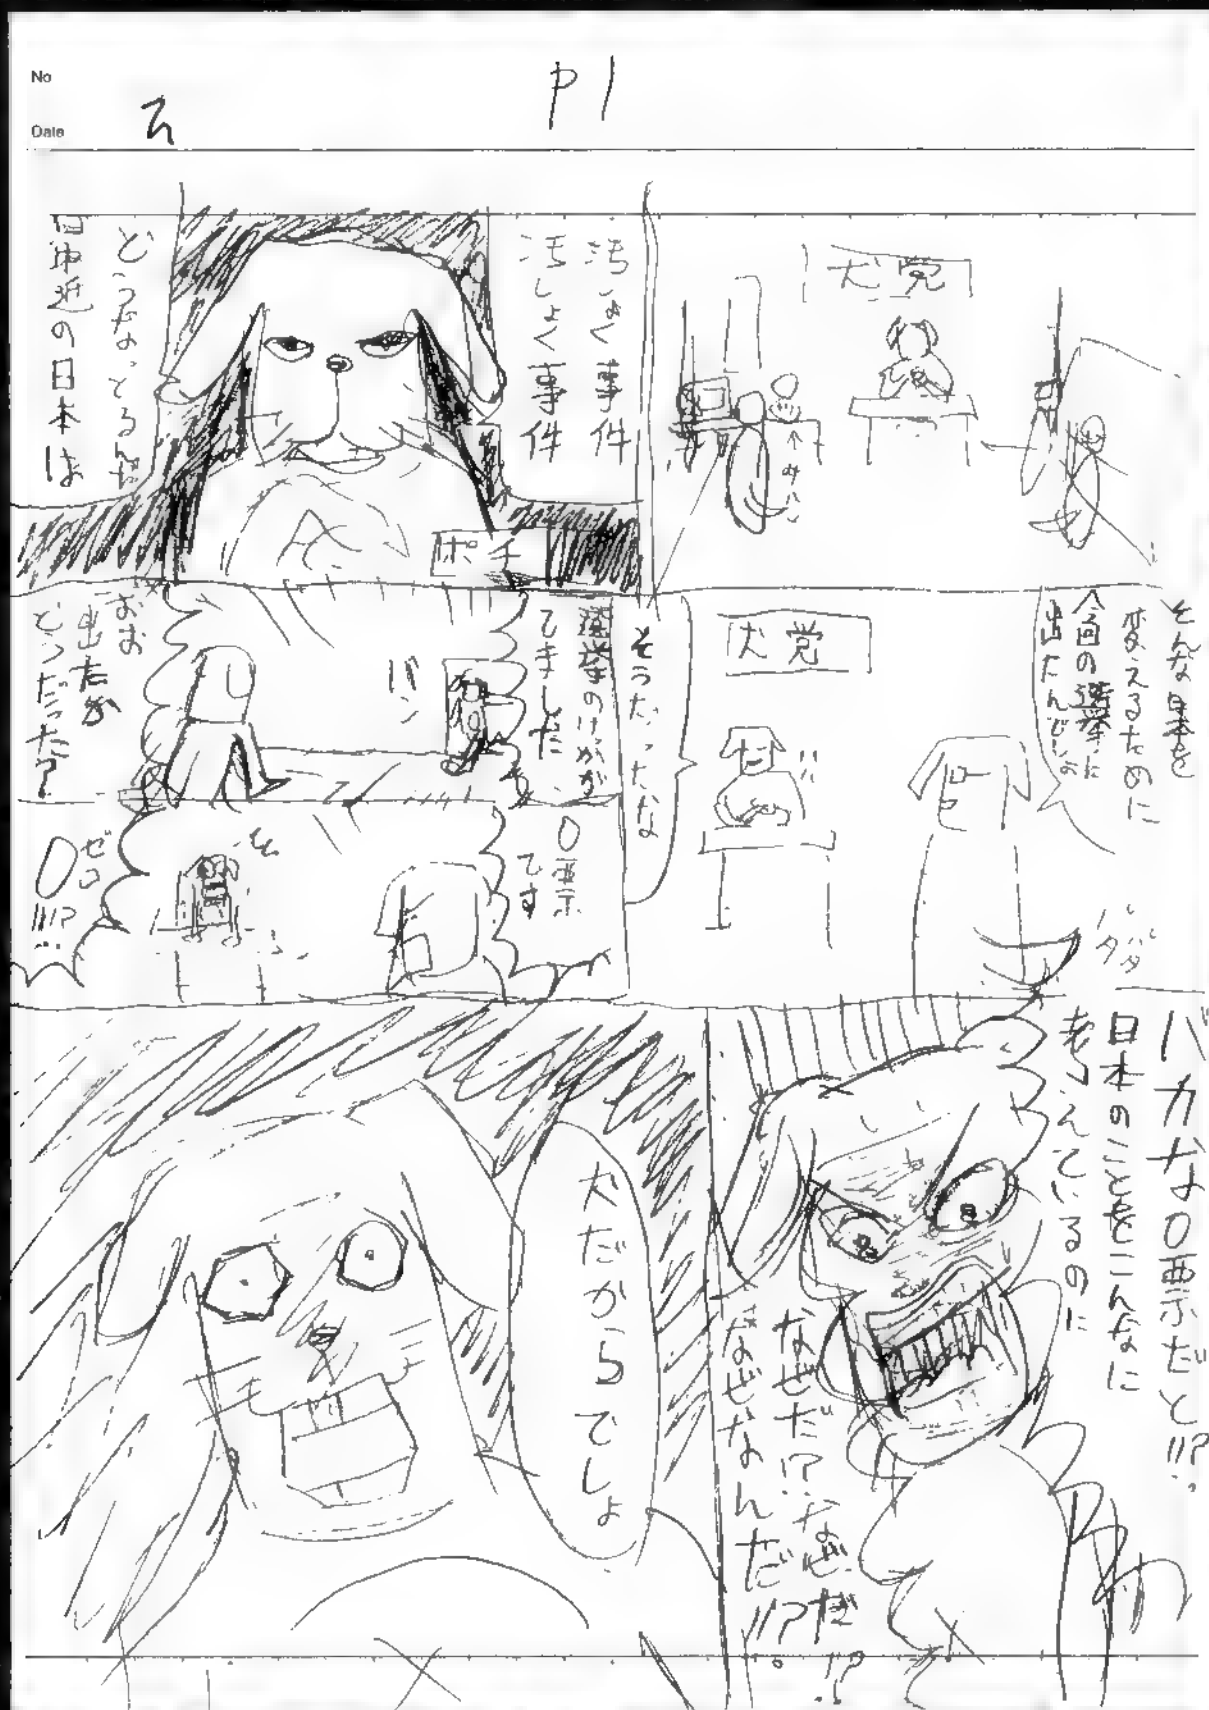 No
Date
P1
犬党
↑みかん
汚しょく事件
汚しょく事件
ポチ
どうなっとるんだ
日本は
そんな日本を
変えるために
今回の選挙に
出たんでしょ
犬党
パタ
パタ
そうだったな
選挙のけっかが
でました
バン
おお
出たか
どうだった?
0票
です
ゼロ
0!!?
バカな0票だと!!?
日本のことをこんなに
考えているのに
なぜだ!?なぜだ!?
なぜなんだ!!?
犬だからでしょ